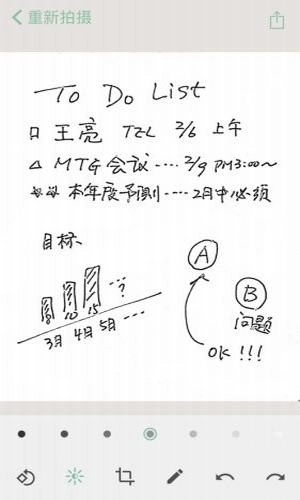 重新拍摄
To Do List
□ 王亮 TEL 2/6 上午
△ MTG 会议‥‥ 2/9 PM3:00~
本年度予測‥‥ 2月中必须
目标
8 10 15 …?
3月 4月 5月 …
A
B
问题
OK !!!